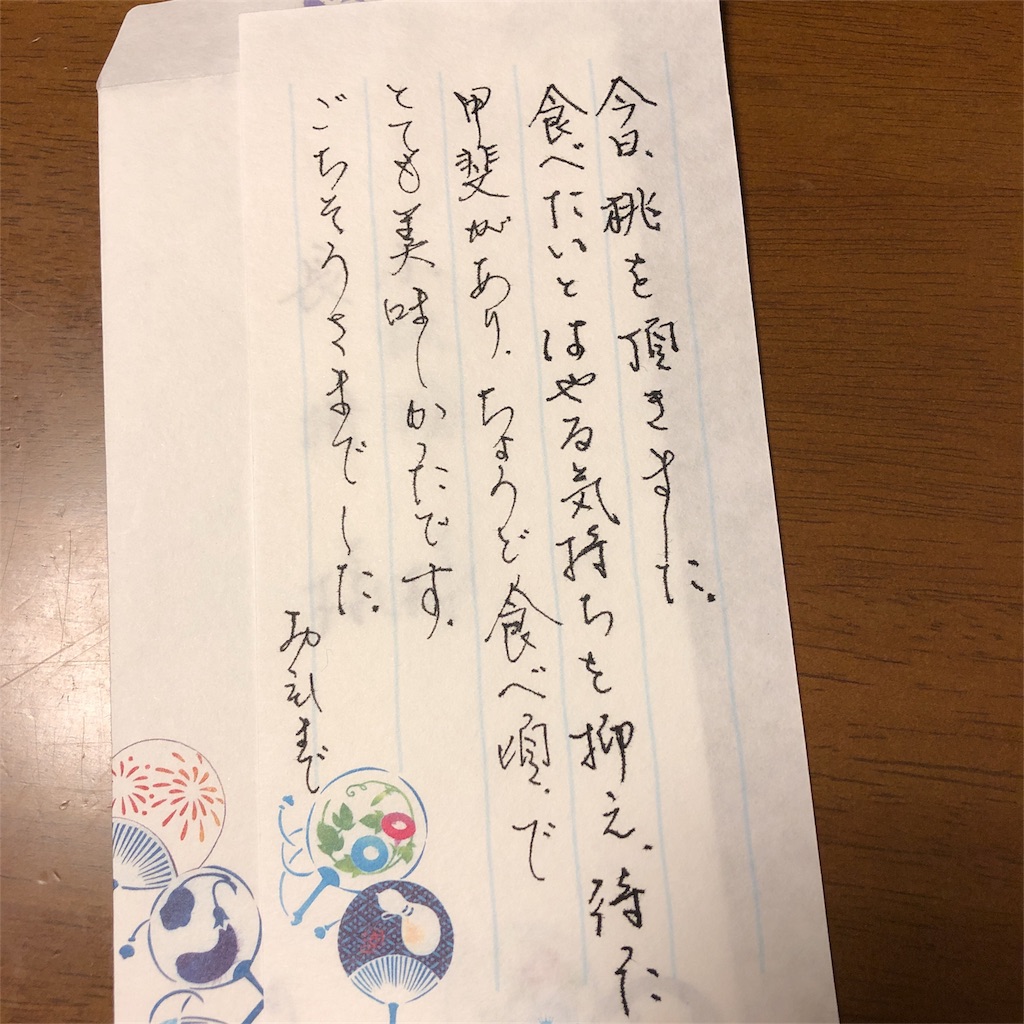 今日、桃を頂きました。
食べたいとはやる気持ちを抑え、待った
甲斐があり、ちょうど食べ頃、で
とても美味しかったです。
ごちそうさまでした。
お礼まで